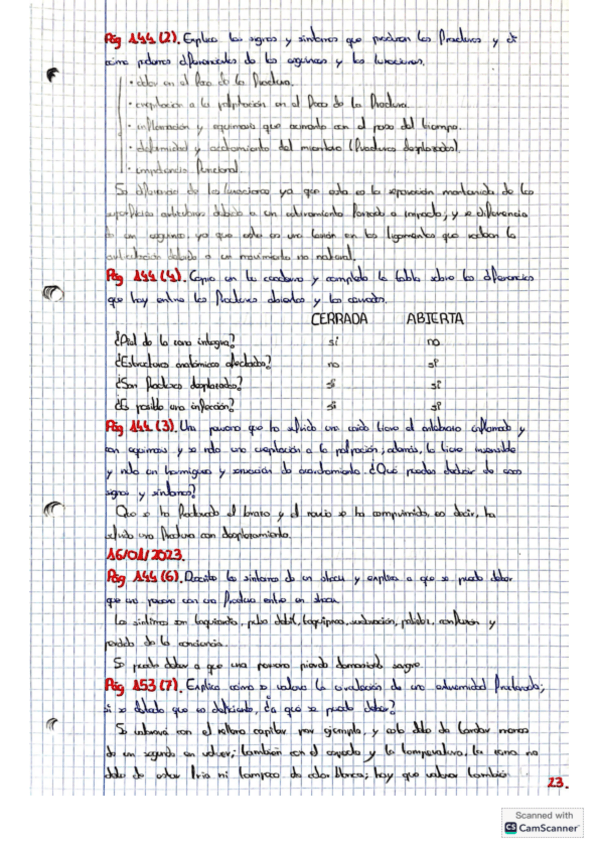 Pág 144 (2). Explica los signos y síntomas que producen las fracturas y di
cómo podemos diferenciarlas de los esguinces y las luxaciones.
· dolor en el foco de la fractura.
· crepitación a la palpitación en el foco de la fractura.
· inflamación y equimosis que aumenta con el paso del tiempo.
· deformidad y acortamiento del miembro (fracturas desplazadas).
· impotencia funcional.
Se diferencia de las luxaciones ya que esta es la separación mantenida de las
superficies articulares debido a un estiramiento forzado o impacto, y se diferencia
de un esguince ya que este es una lesión en los ligamentos que rodean la
articulación debido a un movimiento no natural.
Pág 144 (4). Copia en tu cuaderno y completa la tabla sobre las diferencias
que hay entre las fracturas abiertas y las cerradas.
CERRADA ABIERTA
¿Piel de la zona íntegra? sí no
¿Estructuras anatómicas afectadas? no sí
¿Son fracturas desplazadas? sí sí
¿Es posible una infección? sí sí
Pág 144 (3). Una persona que ha sufrido una caída tiene el antebrazo inflamado y
con equimosis y se nota una crepitación a la palpación; además, lo tiene insensible
y nota un hormigueo y sensación de acorchamiento. ¿Qué puedes deducir de esos
signos y síntomas?
Que se ha fracturado el brazo y el nervio se ha comprimido, es decir, ha
sufrido una fractura con desplazamiento.
16/01/2023.
Pág 144 (6). Describe los síntomas de un shock y explica a que se puede deber
que una persona con una fractura entre en shock.
Los síntomas son taquicardia, pulso débil, taquipnea, sudoración, palidez, confusión y
pérdida de la consciencia.
Se puede deber a que una persona pierda demasiada sangre.
Pág 153 (7). Explica cómo se valora la circulación de una extremidad fracturada;
si se detecta que es deficiente, ¿a que se puede deber?
Se valorará con el relleno capilar por ejemplo, y este debe de tardar menos
de un segundo en volver; también con el aspecto y la temperatura, la zona no
debe de estar fría ni tampoco de color blanca; hay que valorar también
23.
Scanned with
CS CamScanner